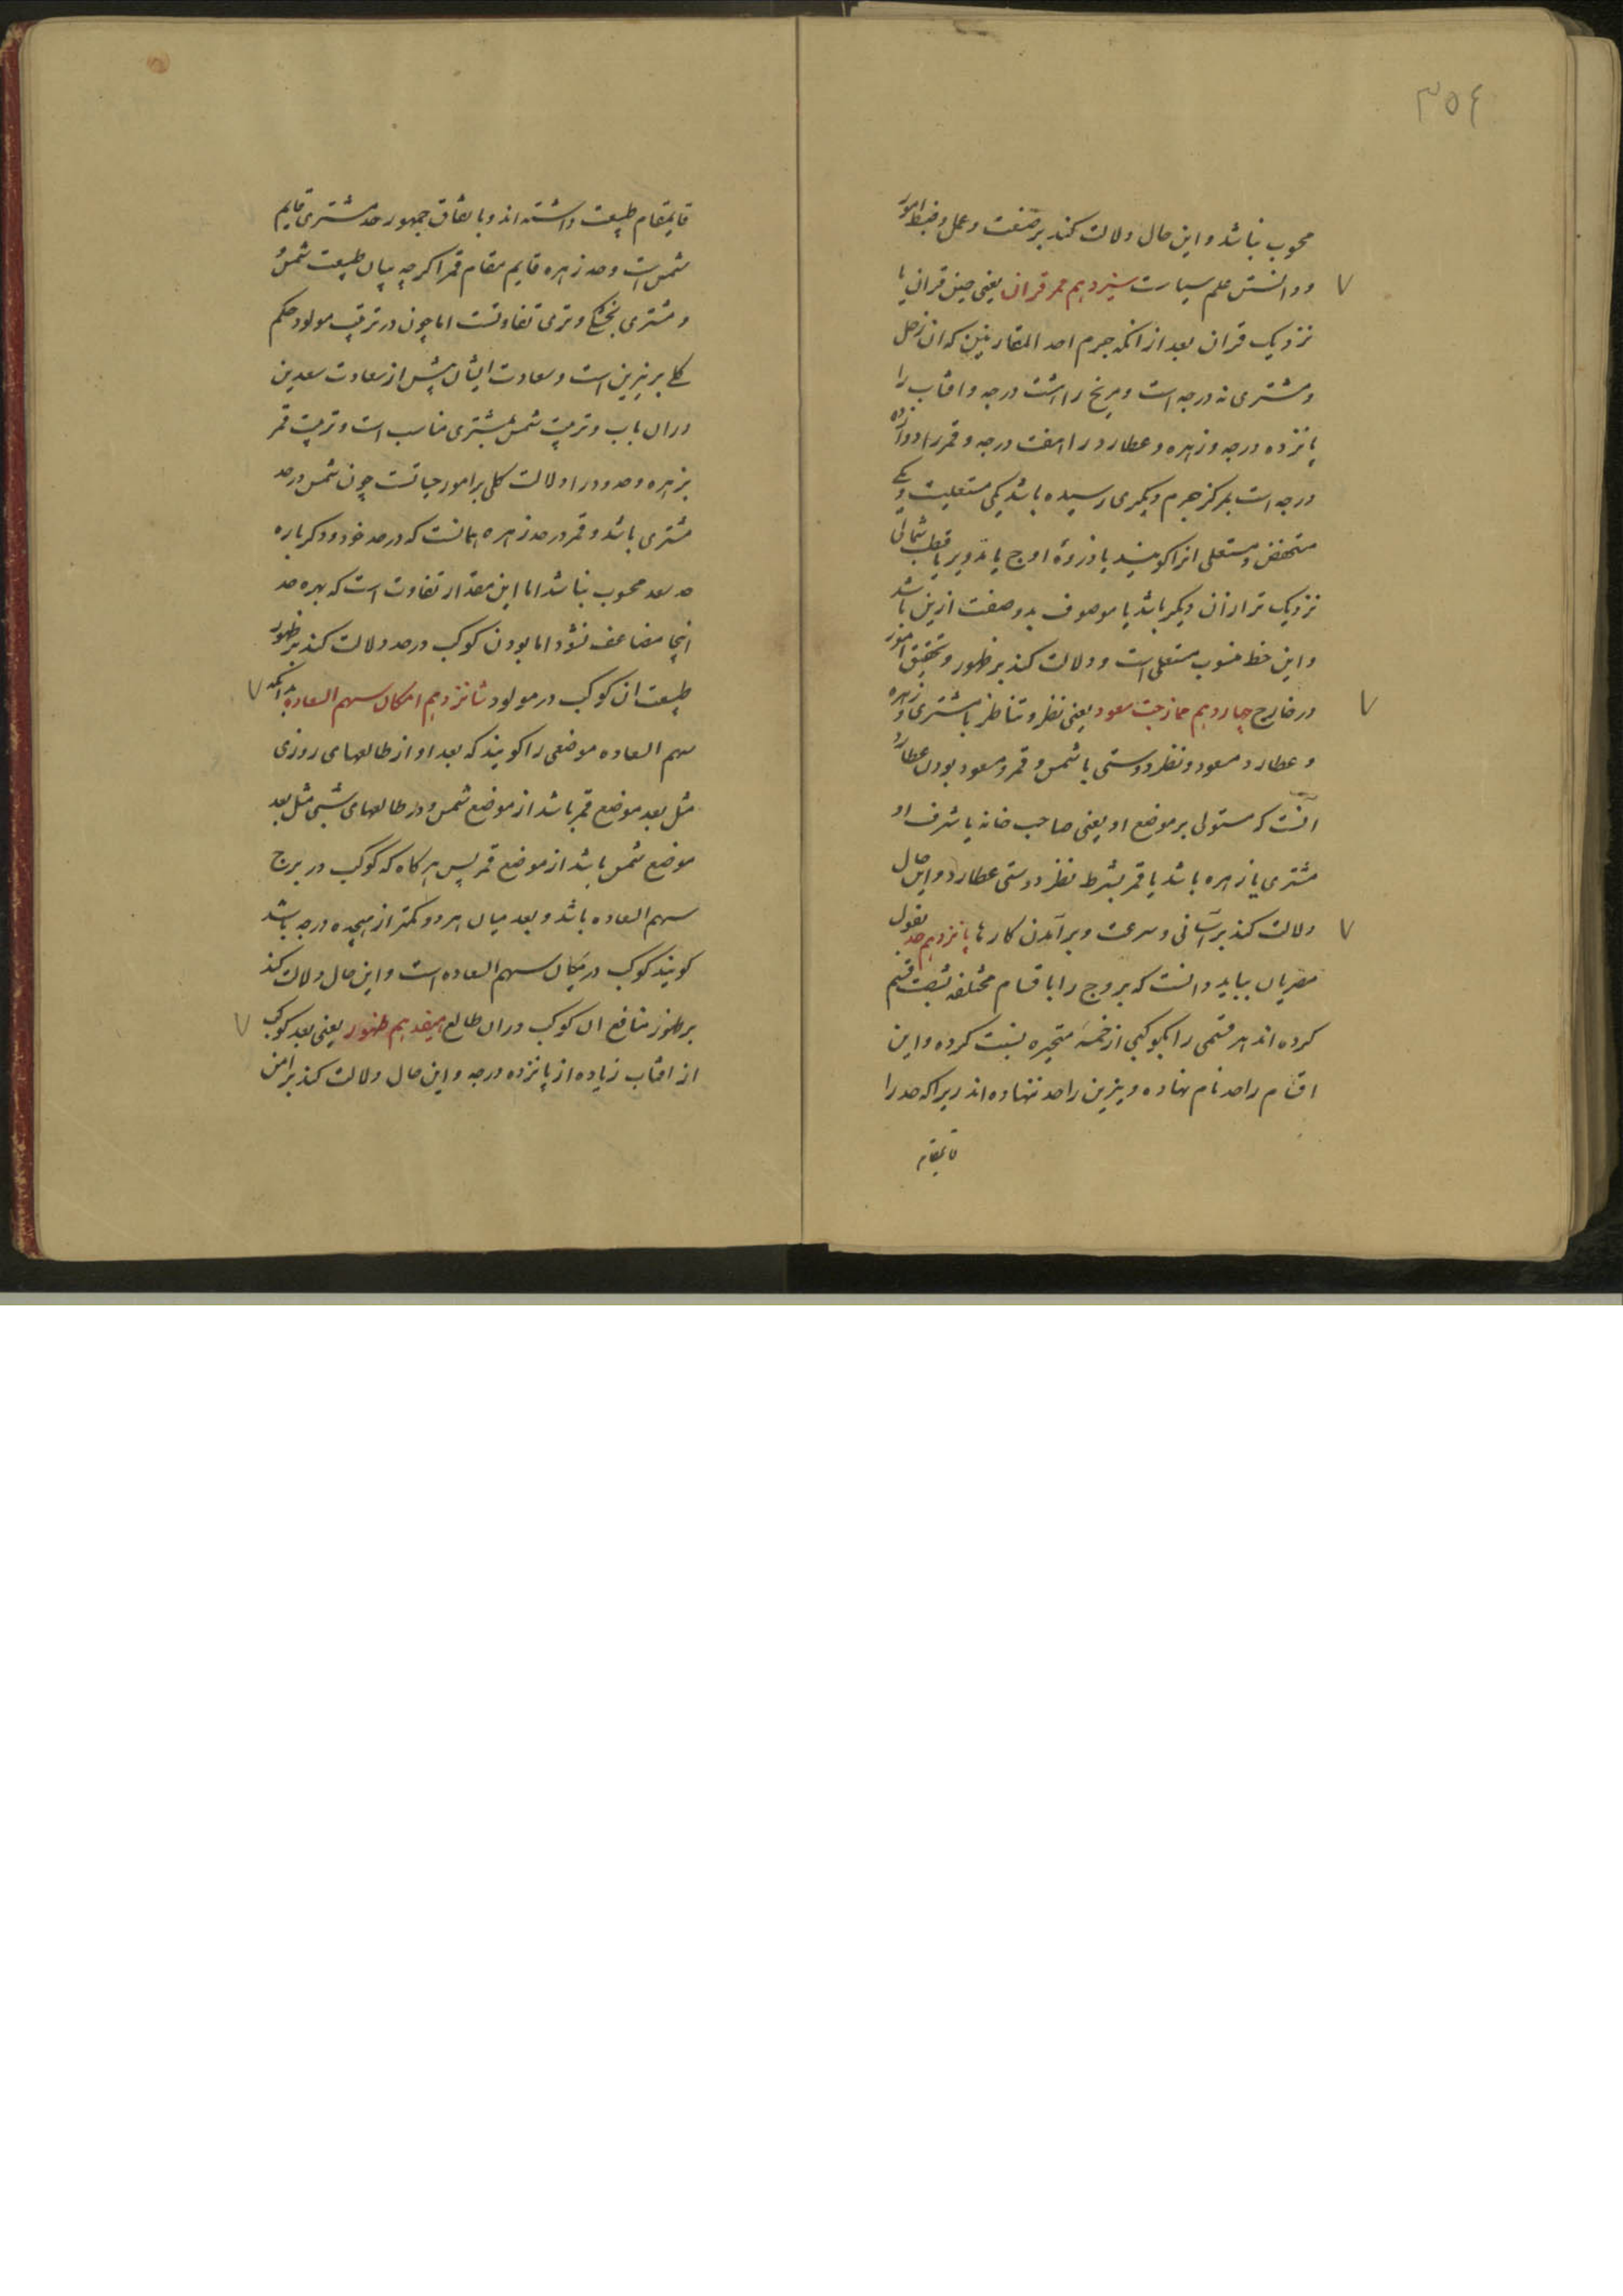 ٣٥٤
محسوب نباشد و این حال دلالت کند بر صنعت و عمل و ضبط امور
و دانستن علم سیارت سیزدهم ممر قران یعنی حین قران یا
نزدیک قران بعد از آنکه جرم احد المقارنین که ان زحل
و مشتری نه درجه است و مریخ را هشت درجه و افتاب را
پانزده درجه و زهره و عطارد را هفت درجه و قمر را دوازده
درجه است بمرکز جرم دیگری رسیده باشد یکی مستعلیست و یکی
منخفض و مستعلی انرا کویند با ذروهٔ اوج یا تدویر یا قطب شمالی
نزدیک تر از ان دیکر باشد یا موصوف بدو صفت ازین باشد
و این حظ منسوب مستعلی است و دلالت کند بر ظهور و تحقیق امور
در خارج چهاردهم ممازجت سعود یعنی نظر و تناظر با مشتری و زهره
و عطارد مسعود و نظر دوستی با شمس و قمر و مسعود بودن عطارد
انست که مستولی بر موضع او یعنی صاحب خانه یا شرف او
مشتری یا زهره باشد یا قمر بشرط نظر دوستی عطارد و این حال
دلالت کند بر آسانی و سرعت و برآمدن کارها پانزدهم حد بقول
مصریان بباید دانست که بروج را باقسام مختلفه بشصت قسم
کرده اند هر قسمی را بکوکبی از خمسهٔ متحیره نسبت کرده و این
اقسام را حد نام نهاده و نیرین را حد ننهاده اند زیرا که حد را
قایمقام
قایمقام طبیعت داشته اند و باتفاق جمهور حد مشتری قایم
شمس است و حد زهره قایم مقام قمر اکرچه میان طبیعت شمس
و مشتری بخشکی و تری تفاوتست اما چون در ترتیب مولود حکم
کلی بر نیرین است و سعادت ایشان بیش از سعادت سعدین
دران باب و ترتیب شمس بمشتری مناسب است و ترتیب قمر
بزهره و حدود را دلالت کلی بر امور حیاتست چون شمس در حد
مشتری باشد و قمر در حد زهره همانست که در حد خود و دکر باره
حد سعد محسوب نباشد اما این مقدار تفاوت است که بهره حد
اینجا مضاعف نشود اما بودن کوکب در حد دلالت کند بر ظهور
طبیعت ان کوکب در مولود شانزدهم امکان سهم السعاده بدانکه
سهم السعاده موضعی را کویند که بعد او از طالعهای روزی
مثل بعد موضع قمر باشد از موضع شمس و در طالعهای شبی مثل بعد
موضع شمس باشد از موضع قمر پس هرکاه که کوکب در برج
سهم السعاده باشد و بعد میان هر دو کمتر از هیجده درجه باشد
کویند کوکب در مکان سهم السعاده است و این حال دلالت کند
بر ظهور منافع ان کوکب دران طالع هیفدهم ظهور یعنی بعد کوکب
از افتاب زیاده از پانزده درجه و این حال دلالت کند بر امن